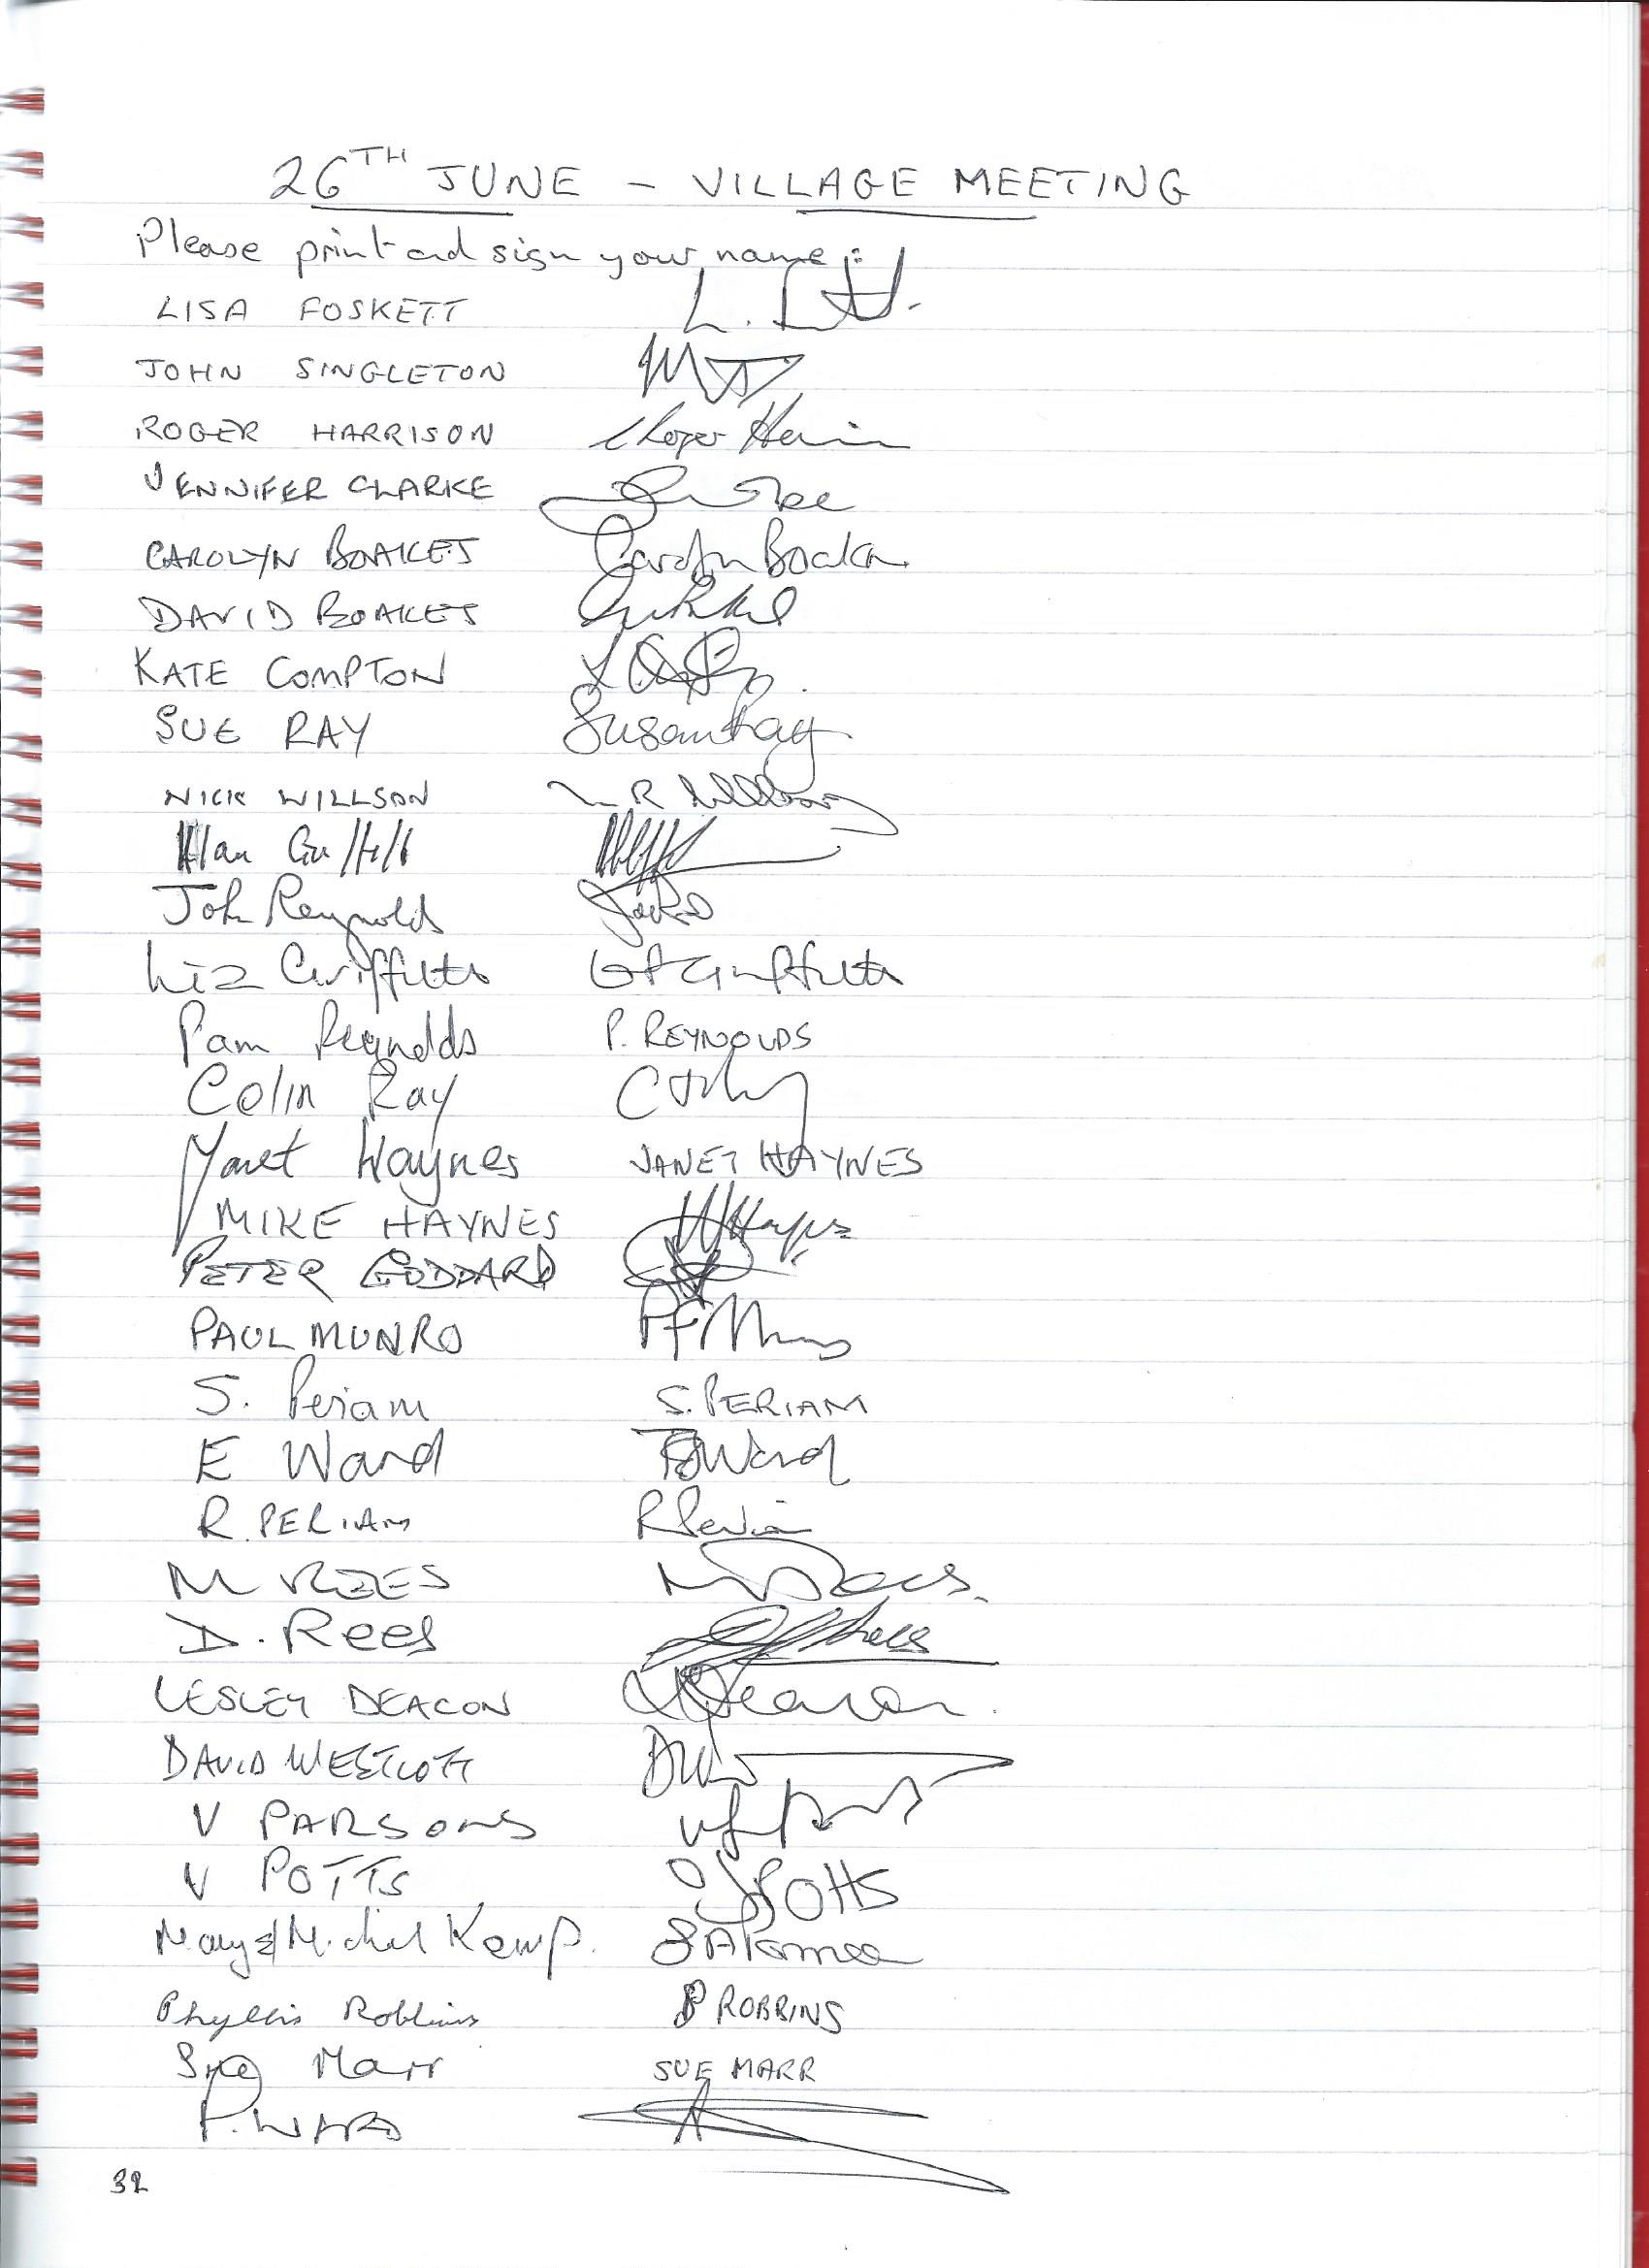 26TH JUNE - VILLAGE MEETING
Please print and sign your name:
LISA FOSKETT
JOHN SINGLETON
ROGER HARRISON Roger Harrison
JENNIFER CLARKE
CAROLYN BOAKES Carolyn Boakes
DAVID BOAKES
KATE COMPTON
SUE RAY Susan Ray
NICK WILLSON
Alan
John Reynolds
Liz Griffiths Griffiths
Pam Reynolds P. REYNOLDS
Colin Ray
Janet Haynes JANET HAYNES
MIKE HAYNES
PETER GODDARD
PAUL MUNRO
S. Periam S. PERIAM
E Ward Ward
R. PERIAM R Periam
M REES Rees.
D. Rees Rees
LESLEY DEACON Deacon.
DAVID WESTCOTT
V PARSONS
V POTTS Potts
Mary & Michael Kemp.
Phyllis Robbins P ROBBINS
Sue Marr SUE MARR
P. WARD
32